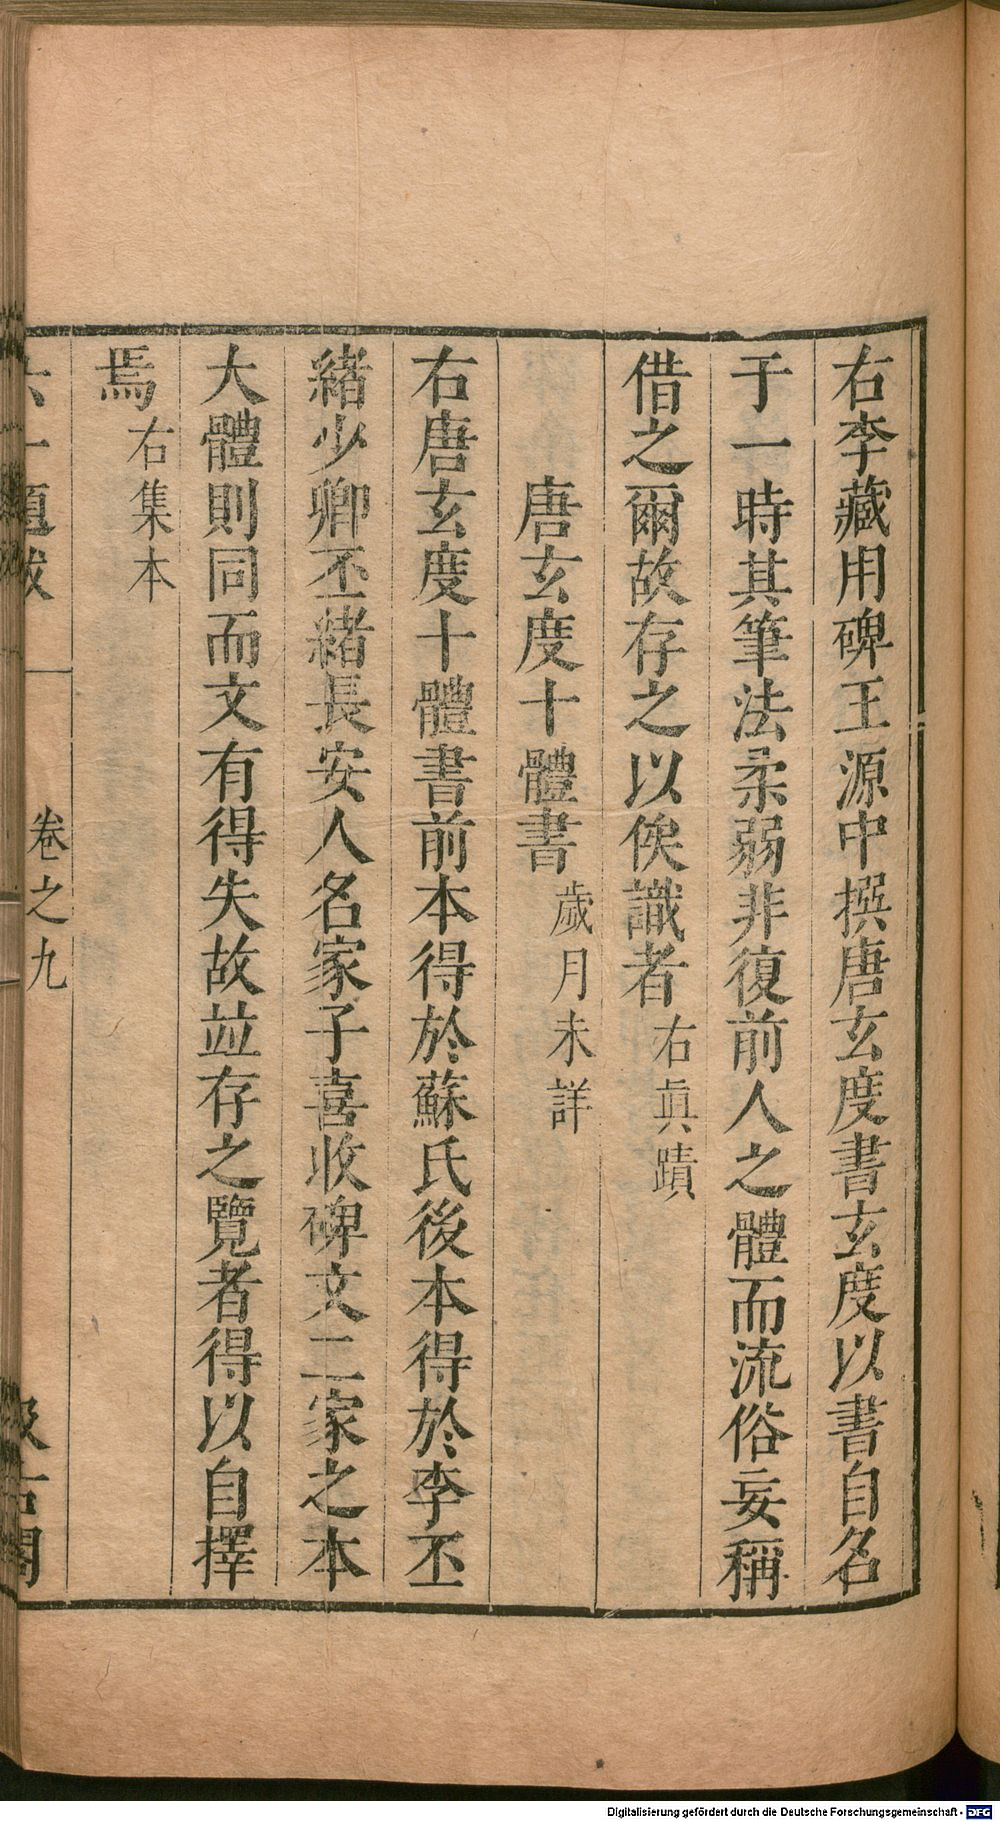 右李藏用碑王源中撰唐玄度書玄度以書自名
于一時其筆法柔弱非復前人之體而流俗妄稱
借之爾故存之以俟識者右眞蹟
唐玄度十體書歲月未詳
右唐玄度十體書前本得於蘇氏後本得於李丕
緒少卿丕緒長安人名家子喜收碑文二家之本
大體則同而文有得失故竝存之覽者得以自擇
焉右集本
六一題跋 卷之九 汲古閣
Digitalisierung gefördert durch die Deutsche Forschungsgemeinschaft - DFG